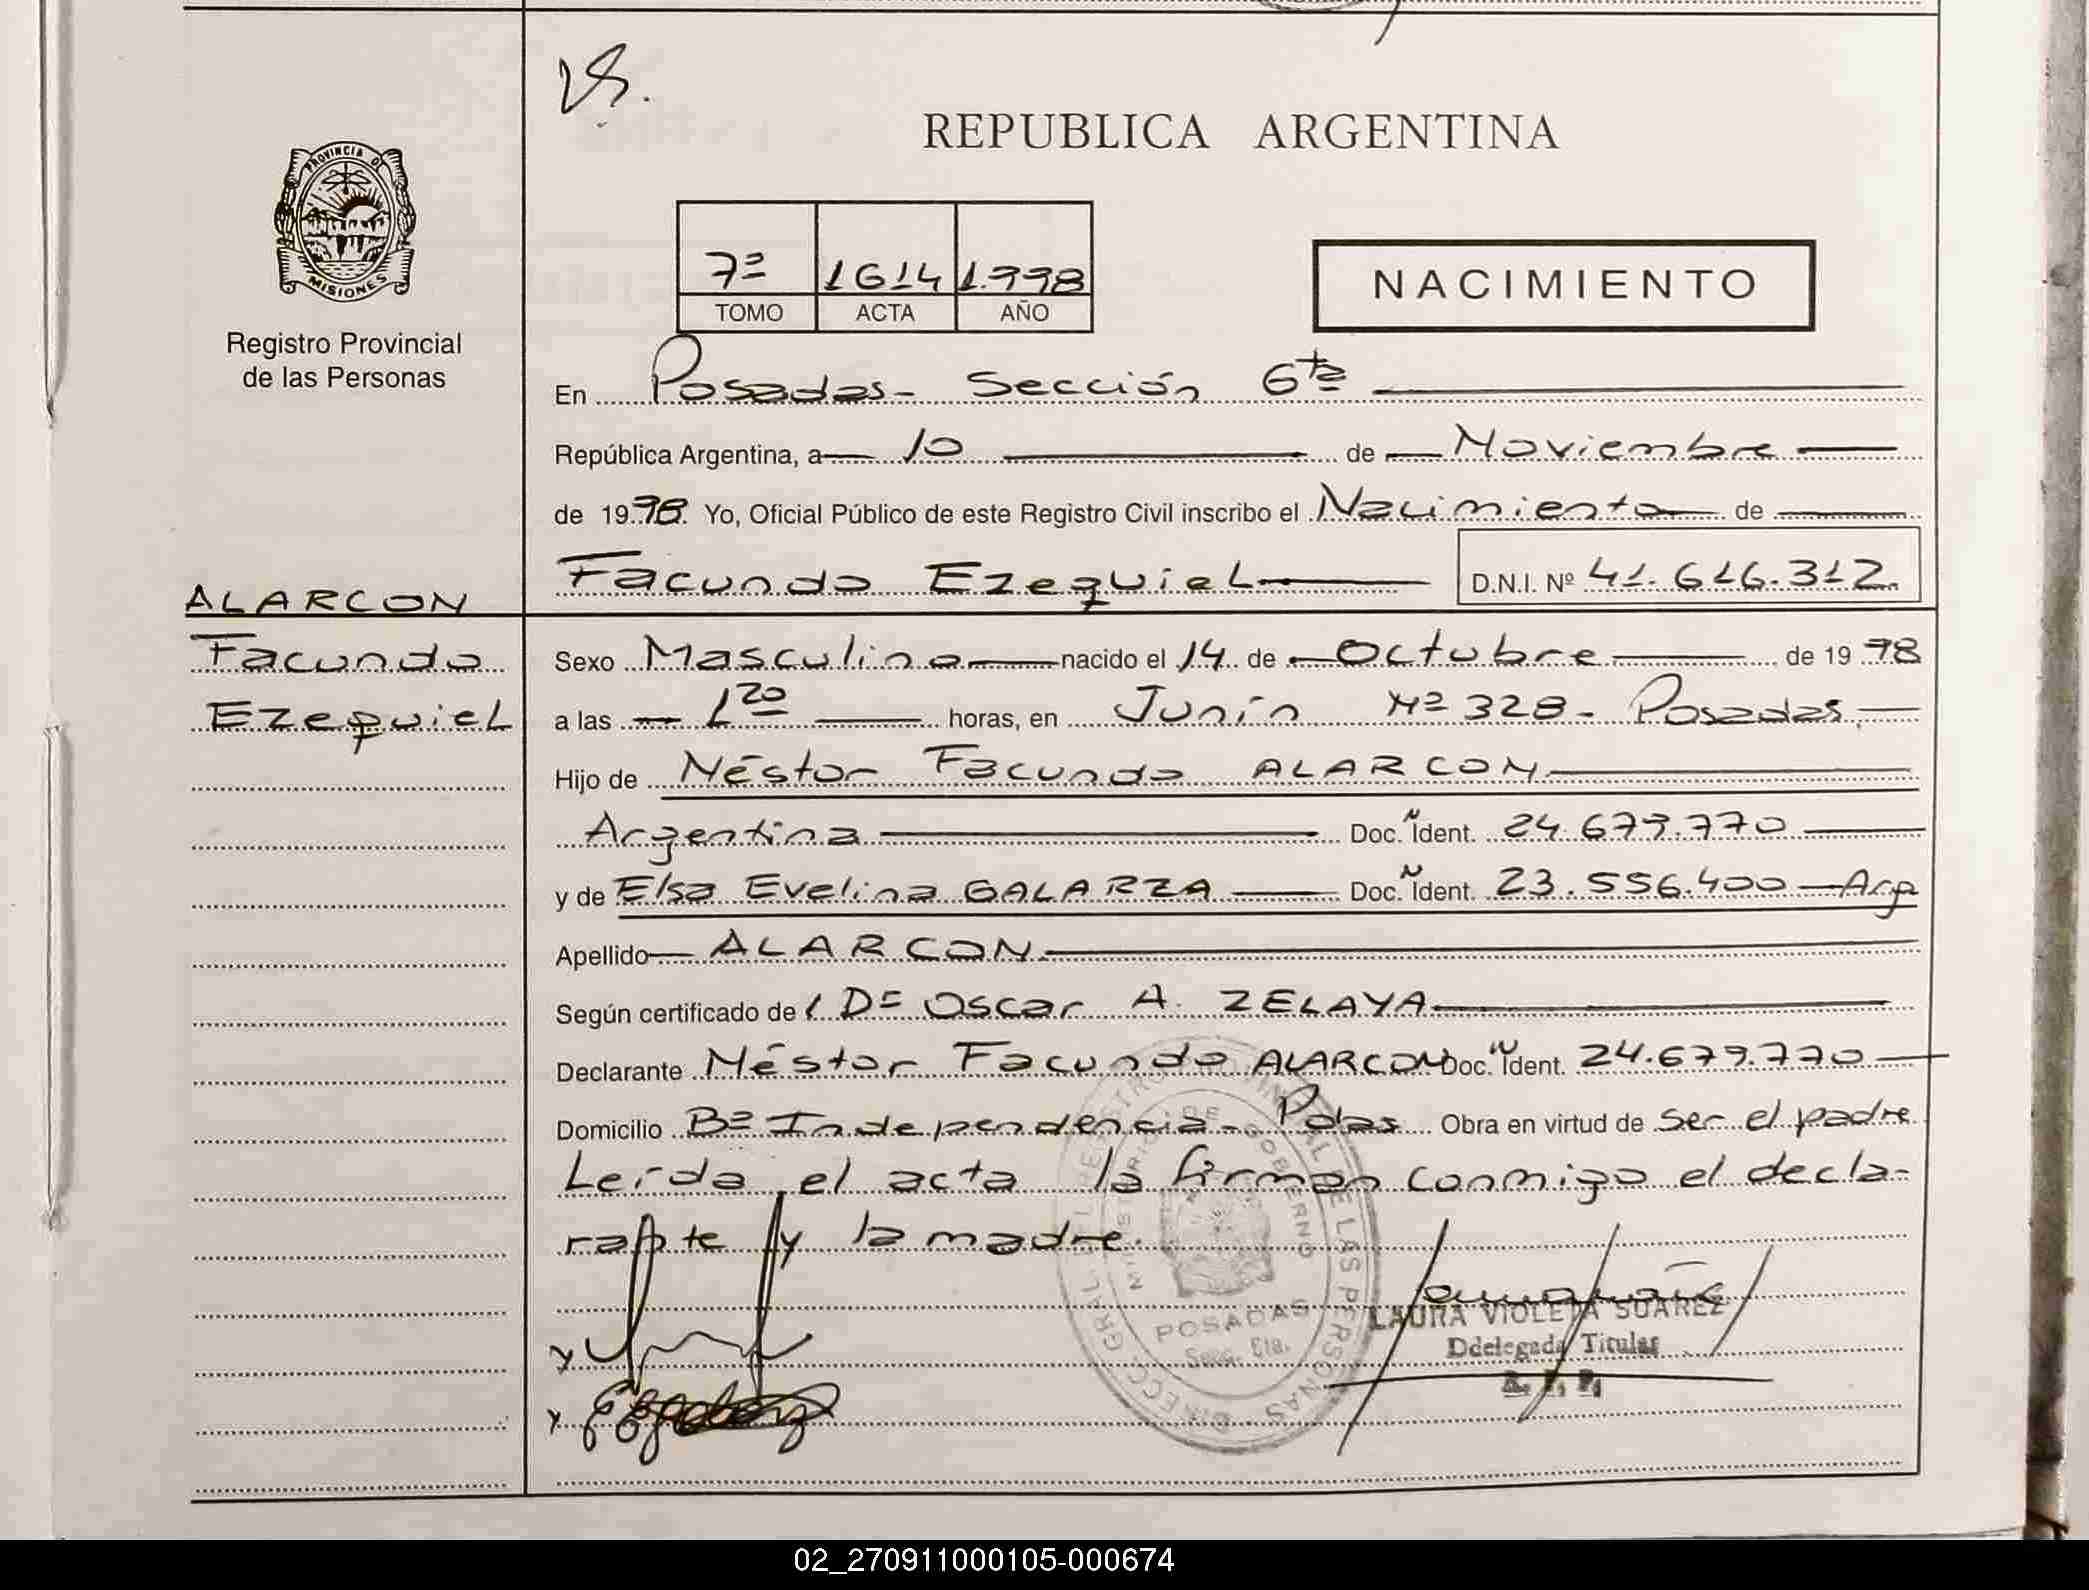 VS.
PROVINCIA DE
MISIONES
Registro Provincial
de las Personas
REPUBLICA ARGENTINA
7º 1614 1.998
TOMO ACTA AÑO
NACIMIENTO
En Posadas - Sección 6ta
República Argentina, a 10 de Noviembre
de 1998. Yo, Oficial Público de este Registro Civil inscribo el Nacimiento de
Facundo Ezequiel D.N.I. Nº 41.616.312.
ALARCON
Facundo
Ezequiel
Sexo Masculino nacido el 14 de Octubre de 1998
a las 1 20 horas, en Junín Nº 328 - Posadas
Hijo de Néstor Facundo ALARCON
Argentina Doc. N Ident. 24.679.770
y de Elsa Evelina GALARZA Doc. N Ident. 23.556.400 - Arg
Apellido ALARCON
Según certificado de l Dr Oscar A. ZELAYA
Declarante Néstor Facundo ALARCON Doc. N Ident. 24.679.770
Domicilio Bº Independencia - Pdas Obra en virtud de ser el padre
Leída el acta la firman conmigo el decla-
rante y la madre.
DIRECC. GRAL. DEL REGISTRO PROVINCIAL DE LAS PERSONAS
MINISTERIO DE GOBIERNO
POSADAS
Secc. 6ta.
LAURA VIOLETA SUAREZ
Ddelegada Titular
R. P. P.
02_270911000105-000674